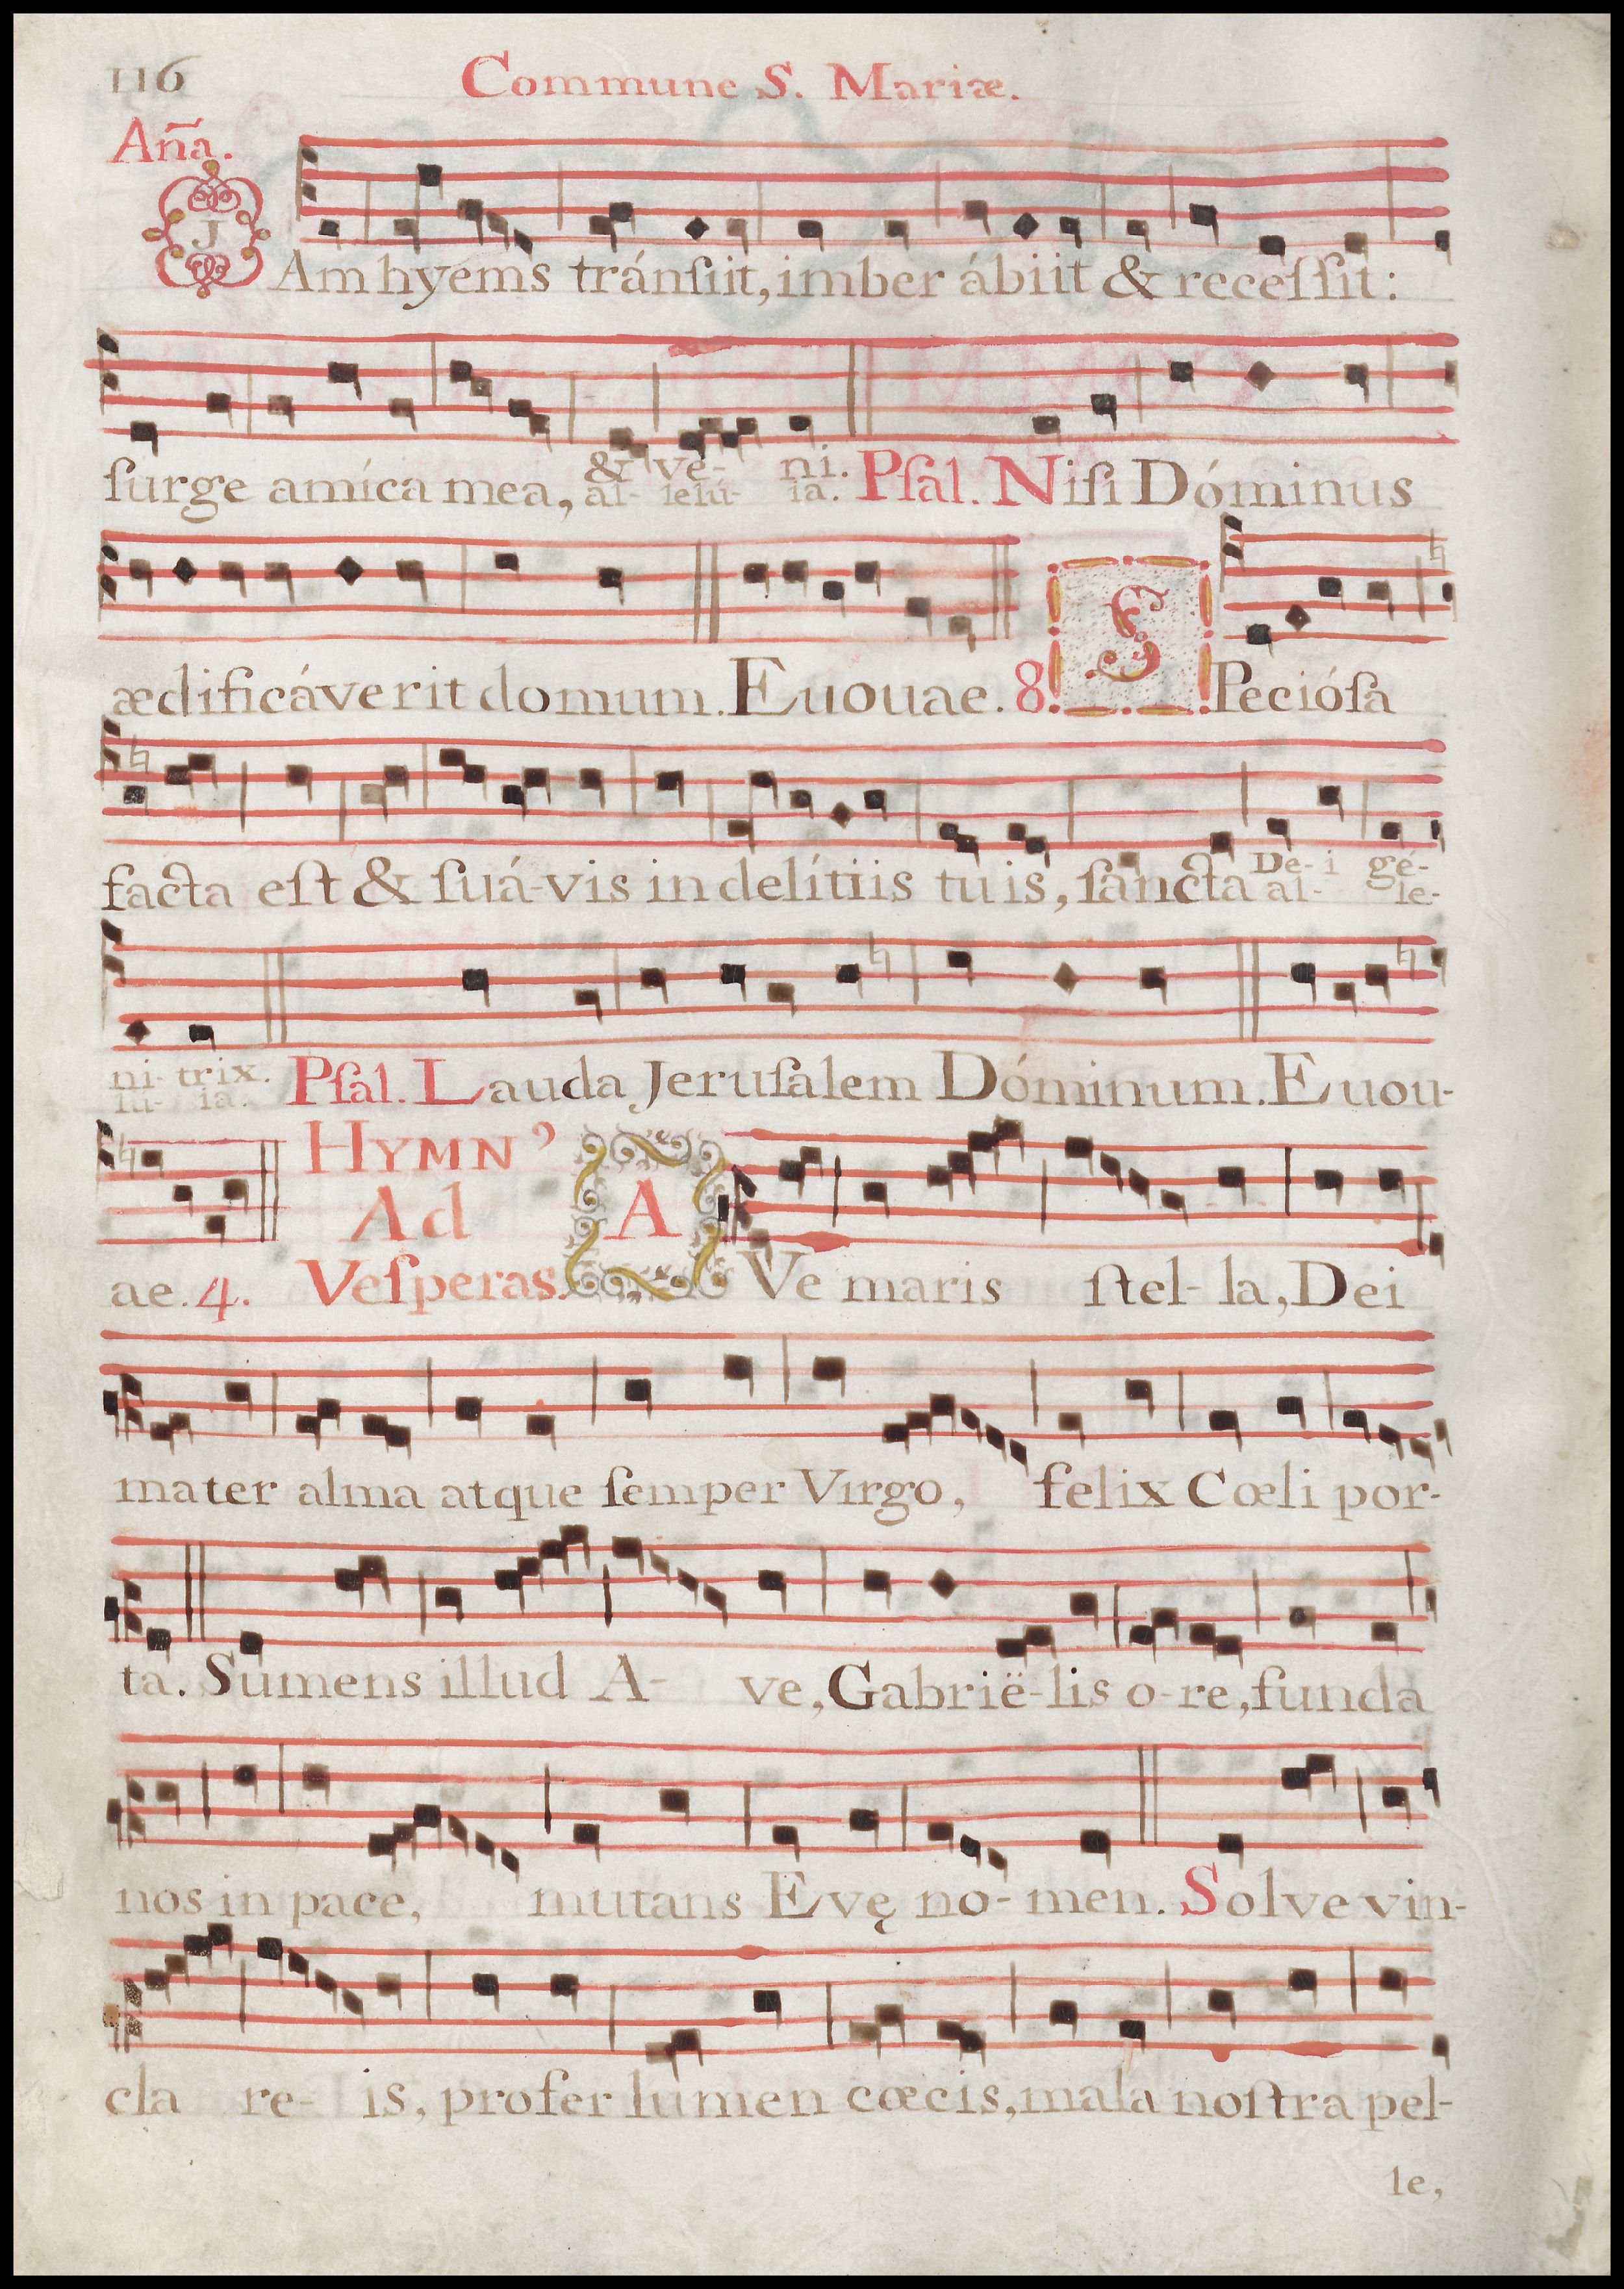 116
Commune S. Mariæ.
Aña.
JAm hyems tránſiit, imber ábiit & receſſit:
ſurge amíca mea, & vé- ni. Pſal. Niſi Dóminus
al- lelú- ia.
ædificáverit domum. Euouae. 8. SPecióſa
facta eſt & ſuá-vis in delítiis tuis, ſancta De- i gé-
al- le-
ni- trix. Pſal. Lauda Jeruſalem Dóminum. Euou-
lu- ia.
HYMN’
Ad
ae. 4. Veſperas. AVe maris ſtel- la, Dei
mater alma atque ſemper Virgo, felix Cœli por-
ta. Sumens illud A- ve, Gabrië-lis o-re, funda
nos in pace, mutans Evę no- men. Solve vin-
cla re- is, profer lumen cœcis, mala noſtra pel-
le,